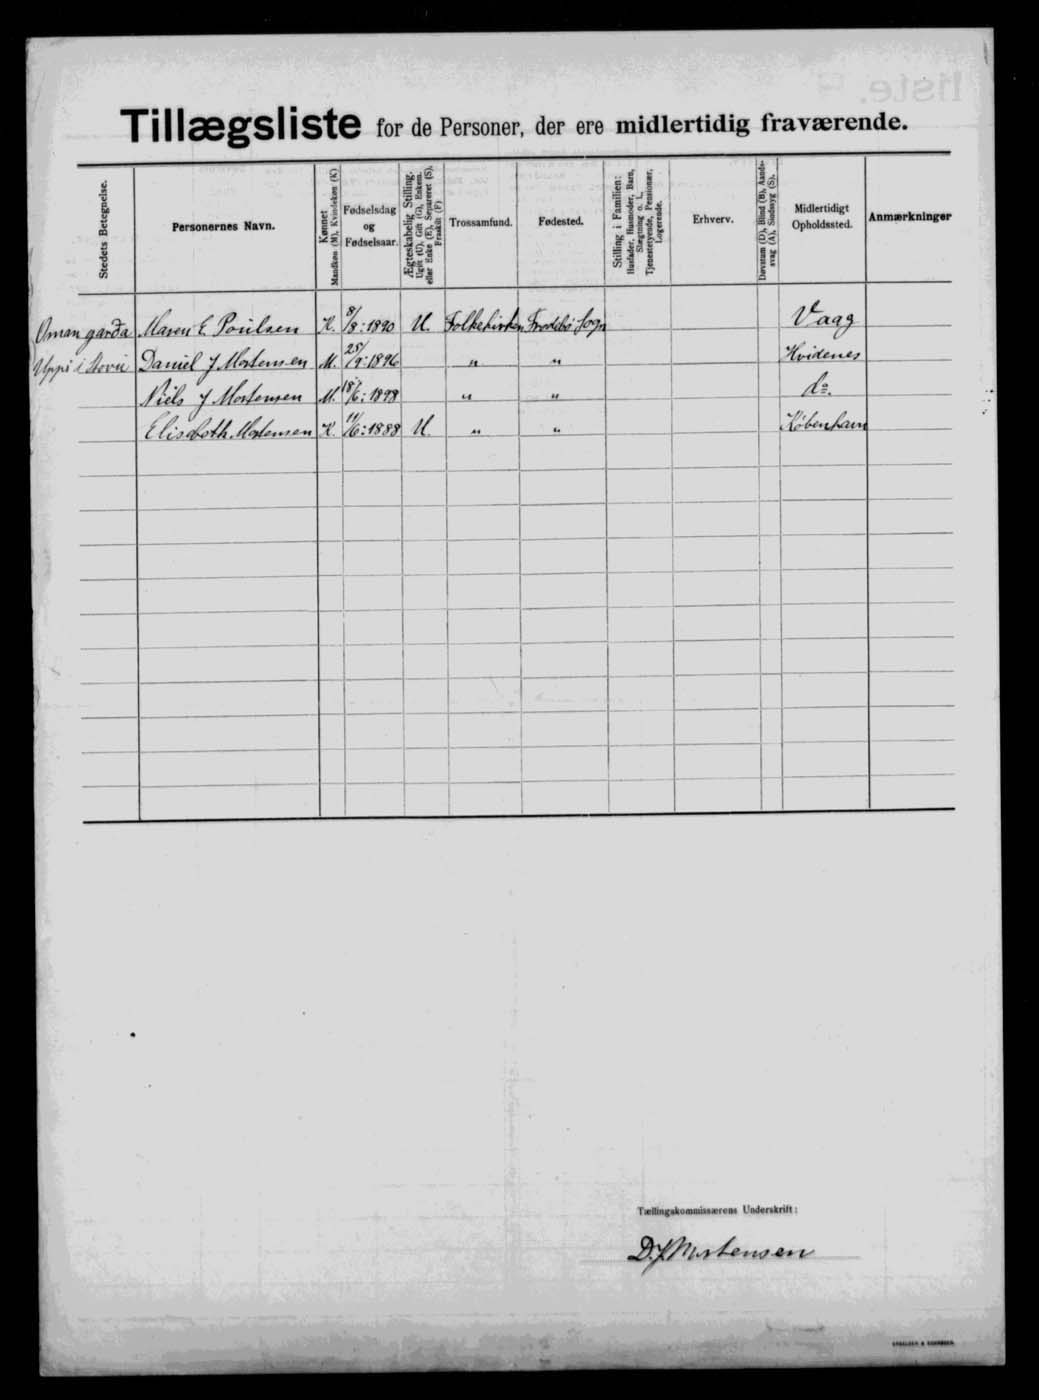 Tillægsliste for de Personer, der ere midlertidig fraværende.
Stedets Betegnelse. Personernes Navn. Kønnet Mandkøn (M), Kvindekøn (K) Fødselsdag og Fødselsaar. Ægteskabelig Stilling. Ugift (U), Gift (G), Enkem. eller Enke (E), Separeret (S), Fraskilt (F) Trossamfund. Fødested. Stilling i Familien: Husfader, Husmoder, Barn, Slægtning o. l., Tjenestetyende, Pensionær, Logerende. Erhverv. Døvstum (D), Blind (B), Aandssvag (A), Sindssyg (S). Midlertidigt Opholdssted. Anmærkninger
Oman garða Maren E. Poulsen K. 8/8: 1890 U. Folkekirken Frodebø Sogn Vaag
Uppi i Stovu Daniel J Mortensen M. 25/9: 1896 " " Hvidenes
Niels J Mortensen M. 18/6: 1898 " " do.
Elisabeth Mortensen K. 11/6: 1888 U. " " København
Tællingskommissærens Underskrift:
D. J. Mortensen